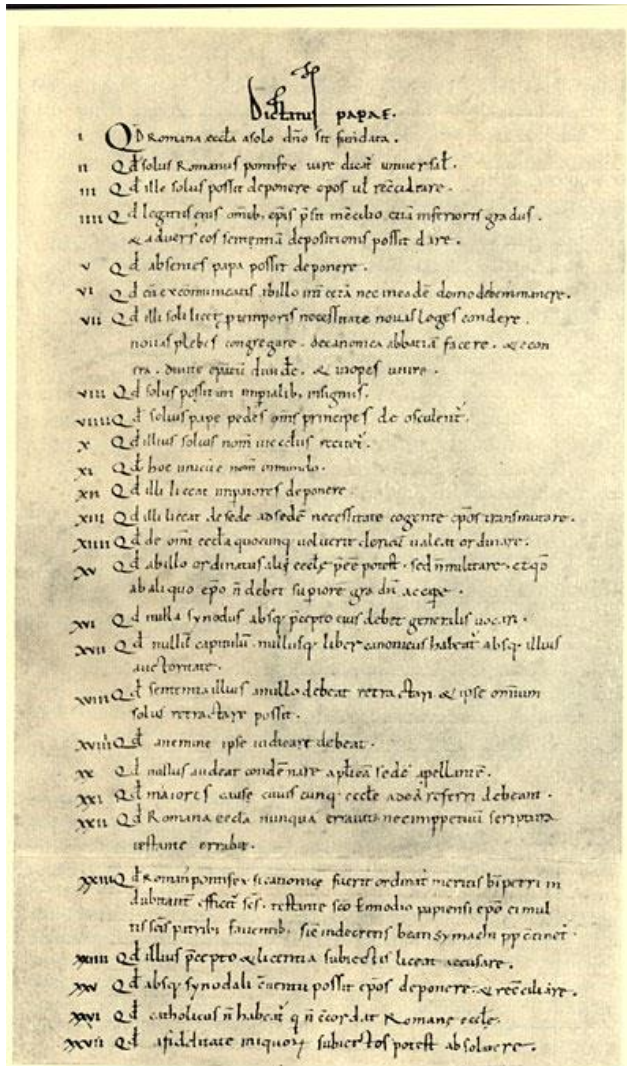 Dictatus papae.
I Qd Romana eccła a solo dño sit fundata.
II Qd̄ solus Romanus pontifex iure dicat̄ universał.
III Qd̄ ille solus possit deponere ep̄os ul̄ recc̄iliare.
IIII Qd̄ legatus eius omīb; ep̄is p̄sit in c̄cilio etiā inferioris gradus.
& adversus eos sententiā depositionis possit dare.
V Qd̄ absentes papa possit deponere.
VI Qd̄ cū excommunicatis ab illo int̄ cetā nec in eadē domo debem̄ manere.
VII Qd̄ illi soli licet p̄ temporis necessitate novas leges condere.
novas plebes congregare. de canonica abbatiā facere. & econ
tra. divite ep̄atū divide. & inopes unire.
VIII Qd̄ solus possit uti imp̄ialib; insigniis.
VIIII Qd̄ solius pape pedes om̄s principes deosculent̄.
X Qd̄ illius solius nom̄ in ecclīis recitet̄.
XI Qd̄ hoc unicū ē nom̄ in mundo.
XII Qd̄ illi liceat imp̄atores deponere.
XIII Qd̄ illi liceat de sede ad sedē necessitate cogente ep̄os transmutare.
XIIII Qd̄ de om̄i eccła quocunq; voluerit clericū valeat ordinare.
XV Qd̄ ab illo ordinatus alii ecclę p̄ēe potest. sed n̄ militare. et qd̄
ab aliquo ep̄o n̄ debet sup̄iore gradū accipe.
XVI Qd̄ nulla synodus absq; p̄cepto eius debet generalis vocari.
XVII Qd̄ nullū capitulū. nullusq; liber canonicus habeat̄ absq; illius
auctoritate.
XVIII Qd̄ sententia illius a nullo debeat retractari & ipse omnium
solus retractare possit.
XVIIII Qd̄ a nemine ipse iudicare debeat.
XX Qd̄ nullus audeat condēnare apl̄icā sedē apellantē.
XXI Qd̄ maiores cause cuiuscunq; eccłe ad eā referri debeant.
XXII Qd̄ Romana eccła nunquā erravit. nec imp̄petuū scriptura
testante errabit.
XXIII Qd̄ Roman̄ pontifex si canonice fuerit ordinat̄ meritis b̄i petri in
dubitant̄ effic̄it̄ sc̄s. testante sc̄o Ennodio papiensi ep̄o ei mul
tis sc̄is patrib; faventib; sic̄ in decretis beati symachi pp c̄tinet̄.
XXIIII Qd̄ illius p̄cepto & licentia subiectis liceat accusare.
XXV Qd̄ absq; synodali c̄ventu possit ep̄os deponere. & recc̄iliare.
XXVI Qd̄ catholicus n̄ habeat̄ q n̄ c̄cordat Romane eccłe.
XXVII Qd̄ a fidelitate iniquoꝝ subiectos potest absolvere.